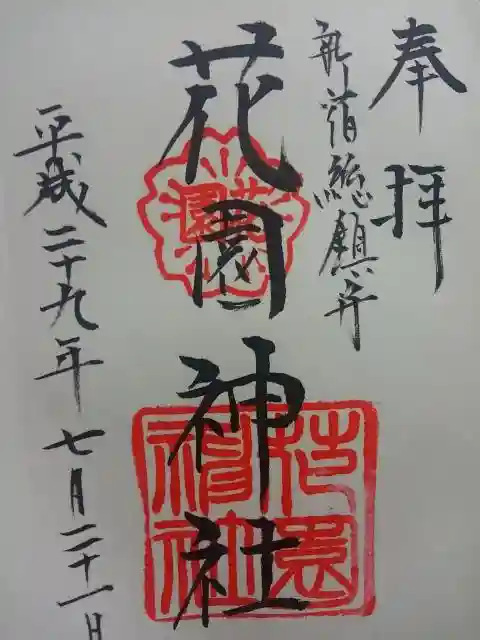 奉拝
新宿総鎮守
花園神社
平成二十九年七月二十一日
花園
花園神社